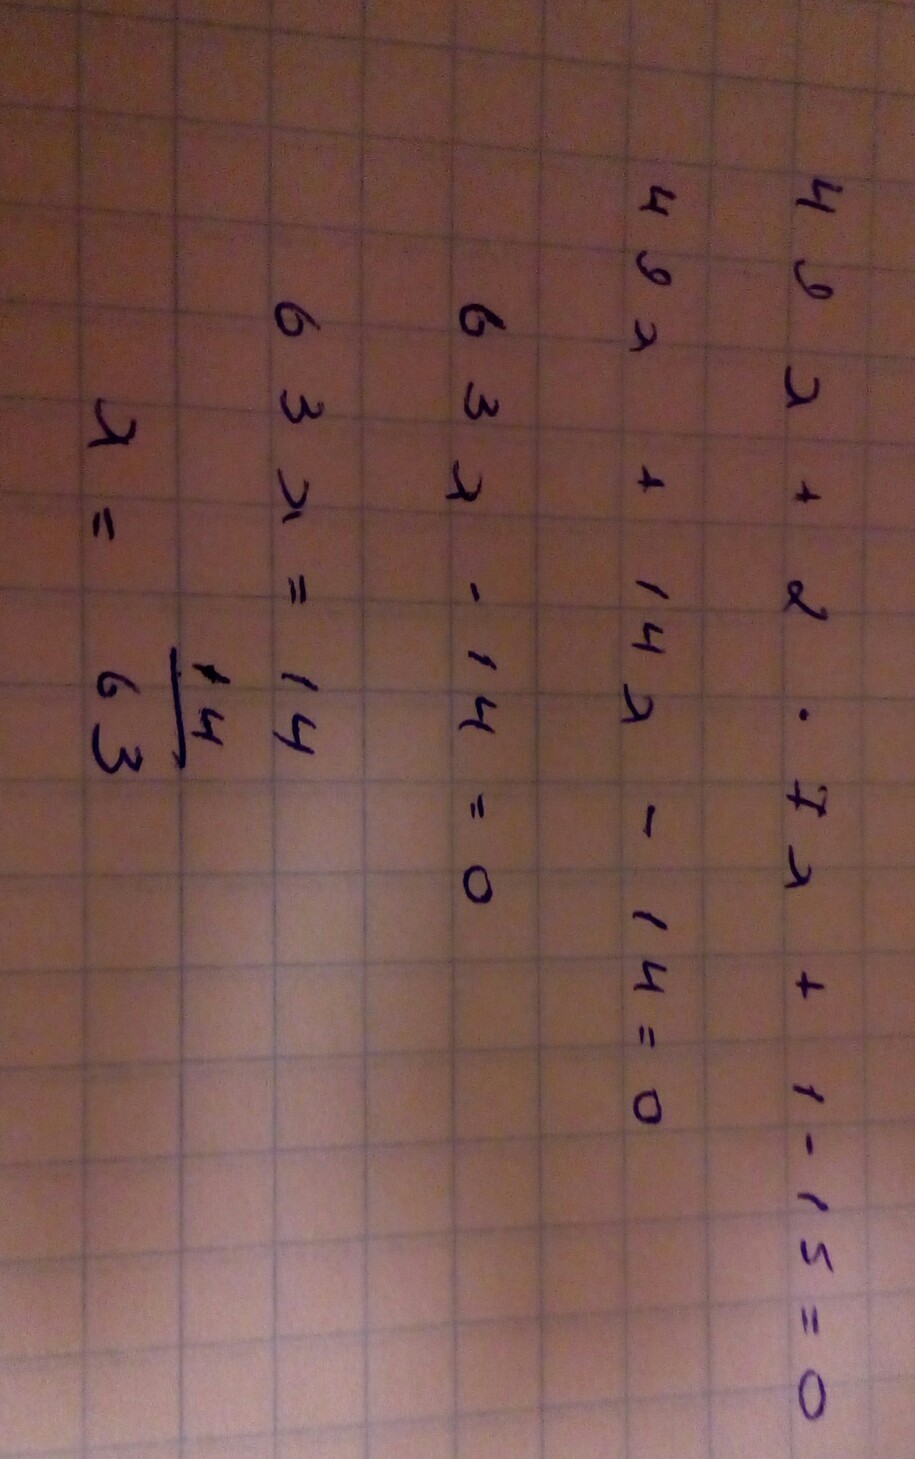 49λ + 2 · 7λ + 1 - 15 = 0
49λ + 14λ - 14 = 0
63λ - 14 = 0
63λ = 14
λ = 14/63